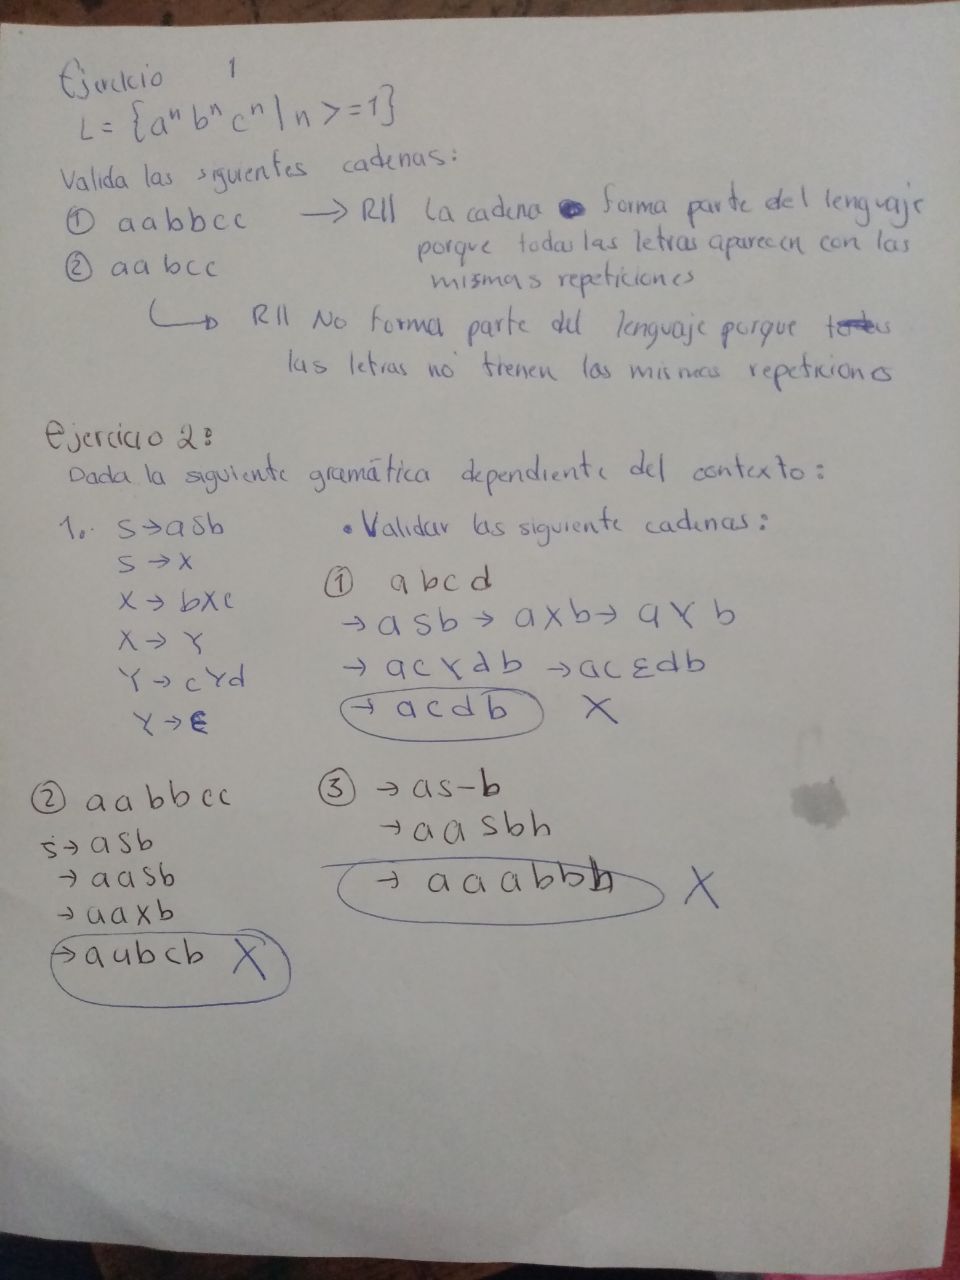 Ejercicio 1
L = {aⁿ bⁿ cⁿ | n >= 1}
Valida las siguientes cadenas:
① aabbcc → R// La cadena forma parte del lenguaje
porque todas las letras aparecen con las
mismas repeticiones
② aabcc
↳ R// No forma parte del lenguaje porque
las letras no tienen las mismas repeticiones
Ejercicio 2:
Dada la siguiente gramática dependiente del contexto:
1. S → aSb
S → X
X → bXc
X → Y
Y → cYd
Y → ε
• Validar las siguiente cadenas:
① abcd
→ asb → axb → aYb
→ acYdb → acεdb
→ acdb X
② aabbcc
S → asb
→ aasb
→ aaxb
→ aabcb X
③ → as-b
→ aasbb
→ aaabbb X